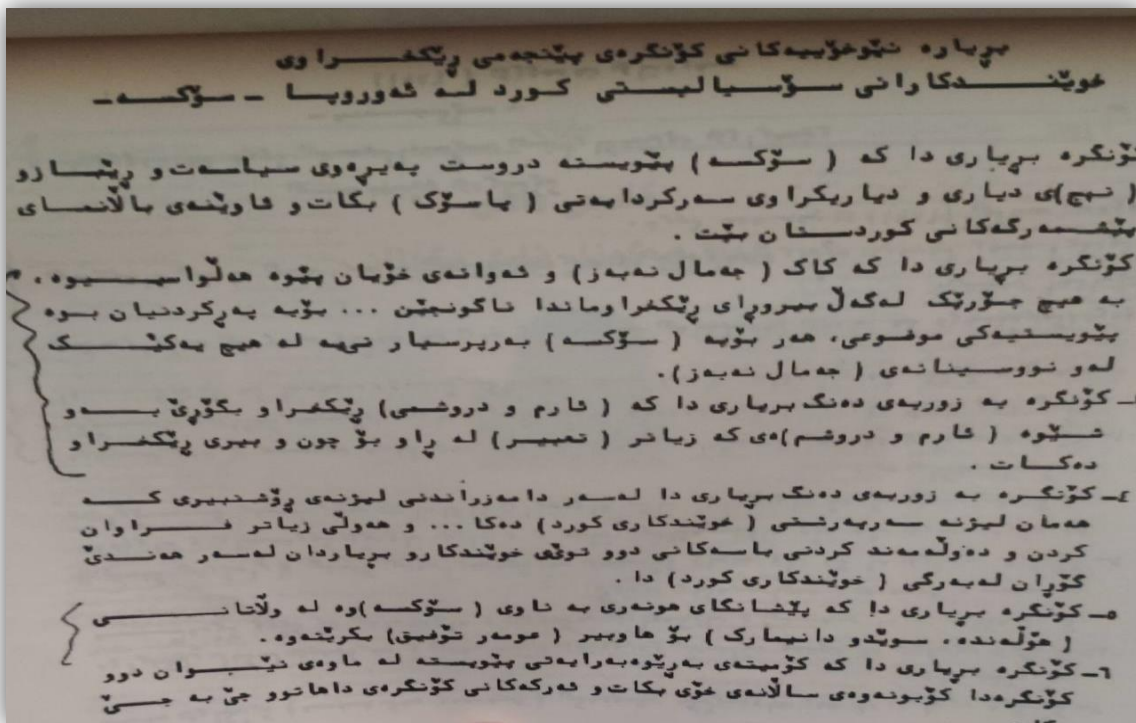 بڕیارە نێوخۆییەکانی کۆنگرەی پێنجەمی ڕێکخراوی
خوێندکارانی سۆسیالیستی کورد لە ئەوروپا - سۆکسە-
کۆنگرە بڕیاری دا کە ( سۆکسە ) پێویستە دروست پەیڕەوی سیاسەت و ڕێبازو
( نهج)ی دیاری و دیاریکراوی سەرکردایەتی ( پاسۆک ) بکات و ئاوێنەی باڵانمای
پێشمەرگەکانی کوردستان بێت .
کۆنگرە بڕیاری دا کە کاک ( جەمال نەبەز) و ئەوانەی خۆیان پێوە هەڵواسیوە .
بە هیچ جۆرێک لەگەڵ بیروڕای ڕێکخراوماندا ناگونجێن ... بۆیە پەڕکردنیان بوە
پێویستیەکی موضوعی، هەر بۆیە ( سۆکسە ) بەرپرسیار نییە لە هیچ یەکێک
لەو نووسینانەی ( جەمال نەبەز).
ـ کۆنگرە بە زوربەی دەنگ بریاری دا کە ( ئارم و دروشمی) ڕێکخراو بگۆڕێ بەو
شێوە ( ئارم و دروشم)ەی کە زیاتر ( تعبیر ) لە ڕاو بۆ چون و بیری ڕێکخراو
دەکات .
٤ـ کۆنگرە بە زوربەی دەنگ بریاری دا لەسەر دامەزراندنی لیژنەی ڕۆشنبیری کە
هەمان لیژنە سەرپەرشتی ( خوێندکاری کورد) دەکا ... و هەوڵی زیاتر فراوان
کردن و دەوڵەمەند کردنی باسەکانی دوو توێی خوێندکارو بڕیاردان لەسەر هەندێ
گۆڕان لەبەرگی ( خوێندکاری کورد) دا .
٥ـ کۆنگرە بریاری دا کە پێشانگای هونەری بە ناوی ( سۆکسە)وە لە وڵاتانی
( هۆڵەندە، سویدو دانیمارک ) بۆ هاوبیر ( عومەر تۆفیق) بکرێتەوە .
٦ـ کۆنگرە بریاری دا کە کۆمیتەی بەڕێوەبەرایەتی پێویستە لە ماوەی نێوان دوو
کۆنگرەدا کۆبونەوەی ساڵانەی خۆی بکات و ئەرکەکانی کۆنگرەی داهاتوو جێ بە جێ